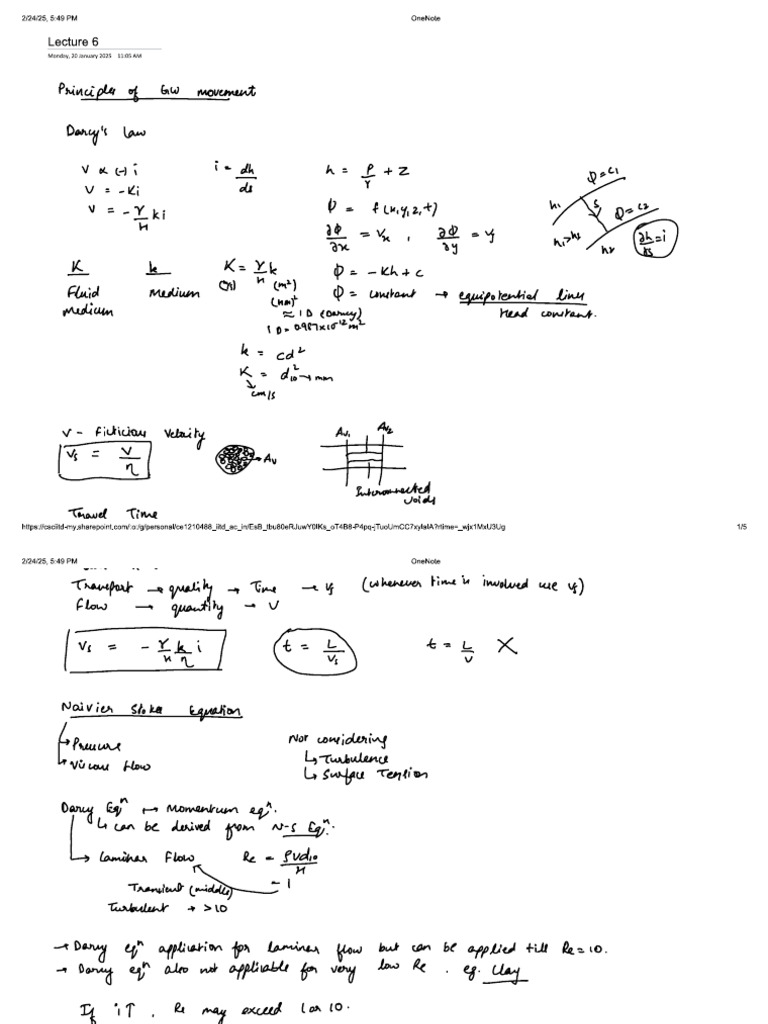 2/24/25, 5:49 PM OneNote
Lecture 6
Monday, 20 January 2025 11:05 AM
Principles of GW movement
Darcy's Law
V ∝ (-) i i = dh/ds h = P/γ + Z
V = -Ki
V = -γ/μ ki
Φ = f(x,y,z,t)
∂Φ/∂x = Vx , ∂Φ/∂y = Vy
Φ=C1
h1 S Φ=C2
h1>h2 h2 ∂h/∂s = i
K k K = γ/μ k Φ = -Kh + c
Fluid medium (m²) Φ = constant → equipotential lines
medium (μm)² Head constant.
≈ 1 D (Darcy)
1 D = 0.987×10⁻¹² m²
k = cd²
K = d²10 → mm
cm/s
V - Ficticious Velocity
Vs = V/η Av Av1 Av2
Interconnected
voids
Travel Time
https://csciitd-my.sharepoint.com/:o:/g/personal/ce1210488_iitd_ac_in/EsB_tbu80eRJuwY0lKs_oT4B8-P4pq-jTuoUmCC7xylalA?rtime=_wjx1MxU3Ug 1/5
2/24/25, 5:49 PM OneNote
Transport → quality → Time → Vs (whenever time is involved use Vs)
Flow → quantity → V
Vs = -γ/μ k/η i t = L/Vs t = L/V X
Naivier Stokes Equation
→ Pressure Not considering
→ Viscous Flow ↳ Turbulence
↳ Surface Tension
Darcy Eqⁿ → Momentum eqⁿ.
↳ can be derived from N-S Eqⁿ.
→ Laminar Flow Re = ρVd10/μ
= 1
Transient (middle)
Turbulent → >10
→ Darcy eqⁿ application for laminar flow but can be applied till Re=10.
→ Darcy eqⁿ also not applicable for very low Re . eg. Clay
If i↑, Re may exceed 1 or 10.